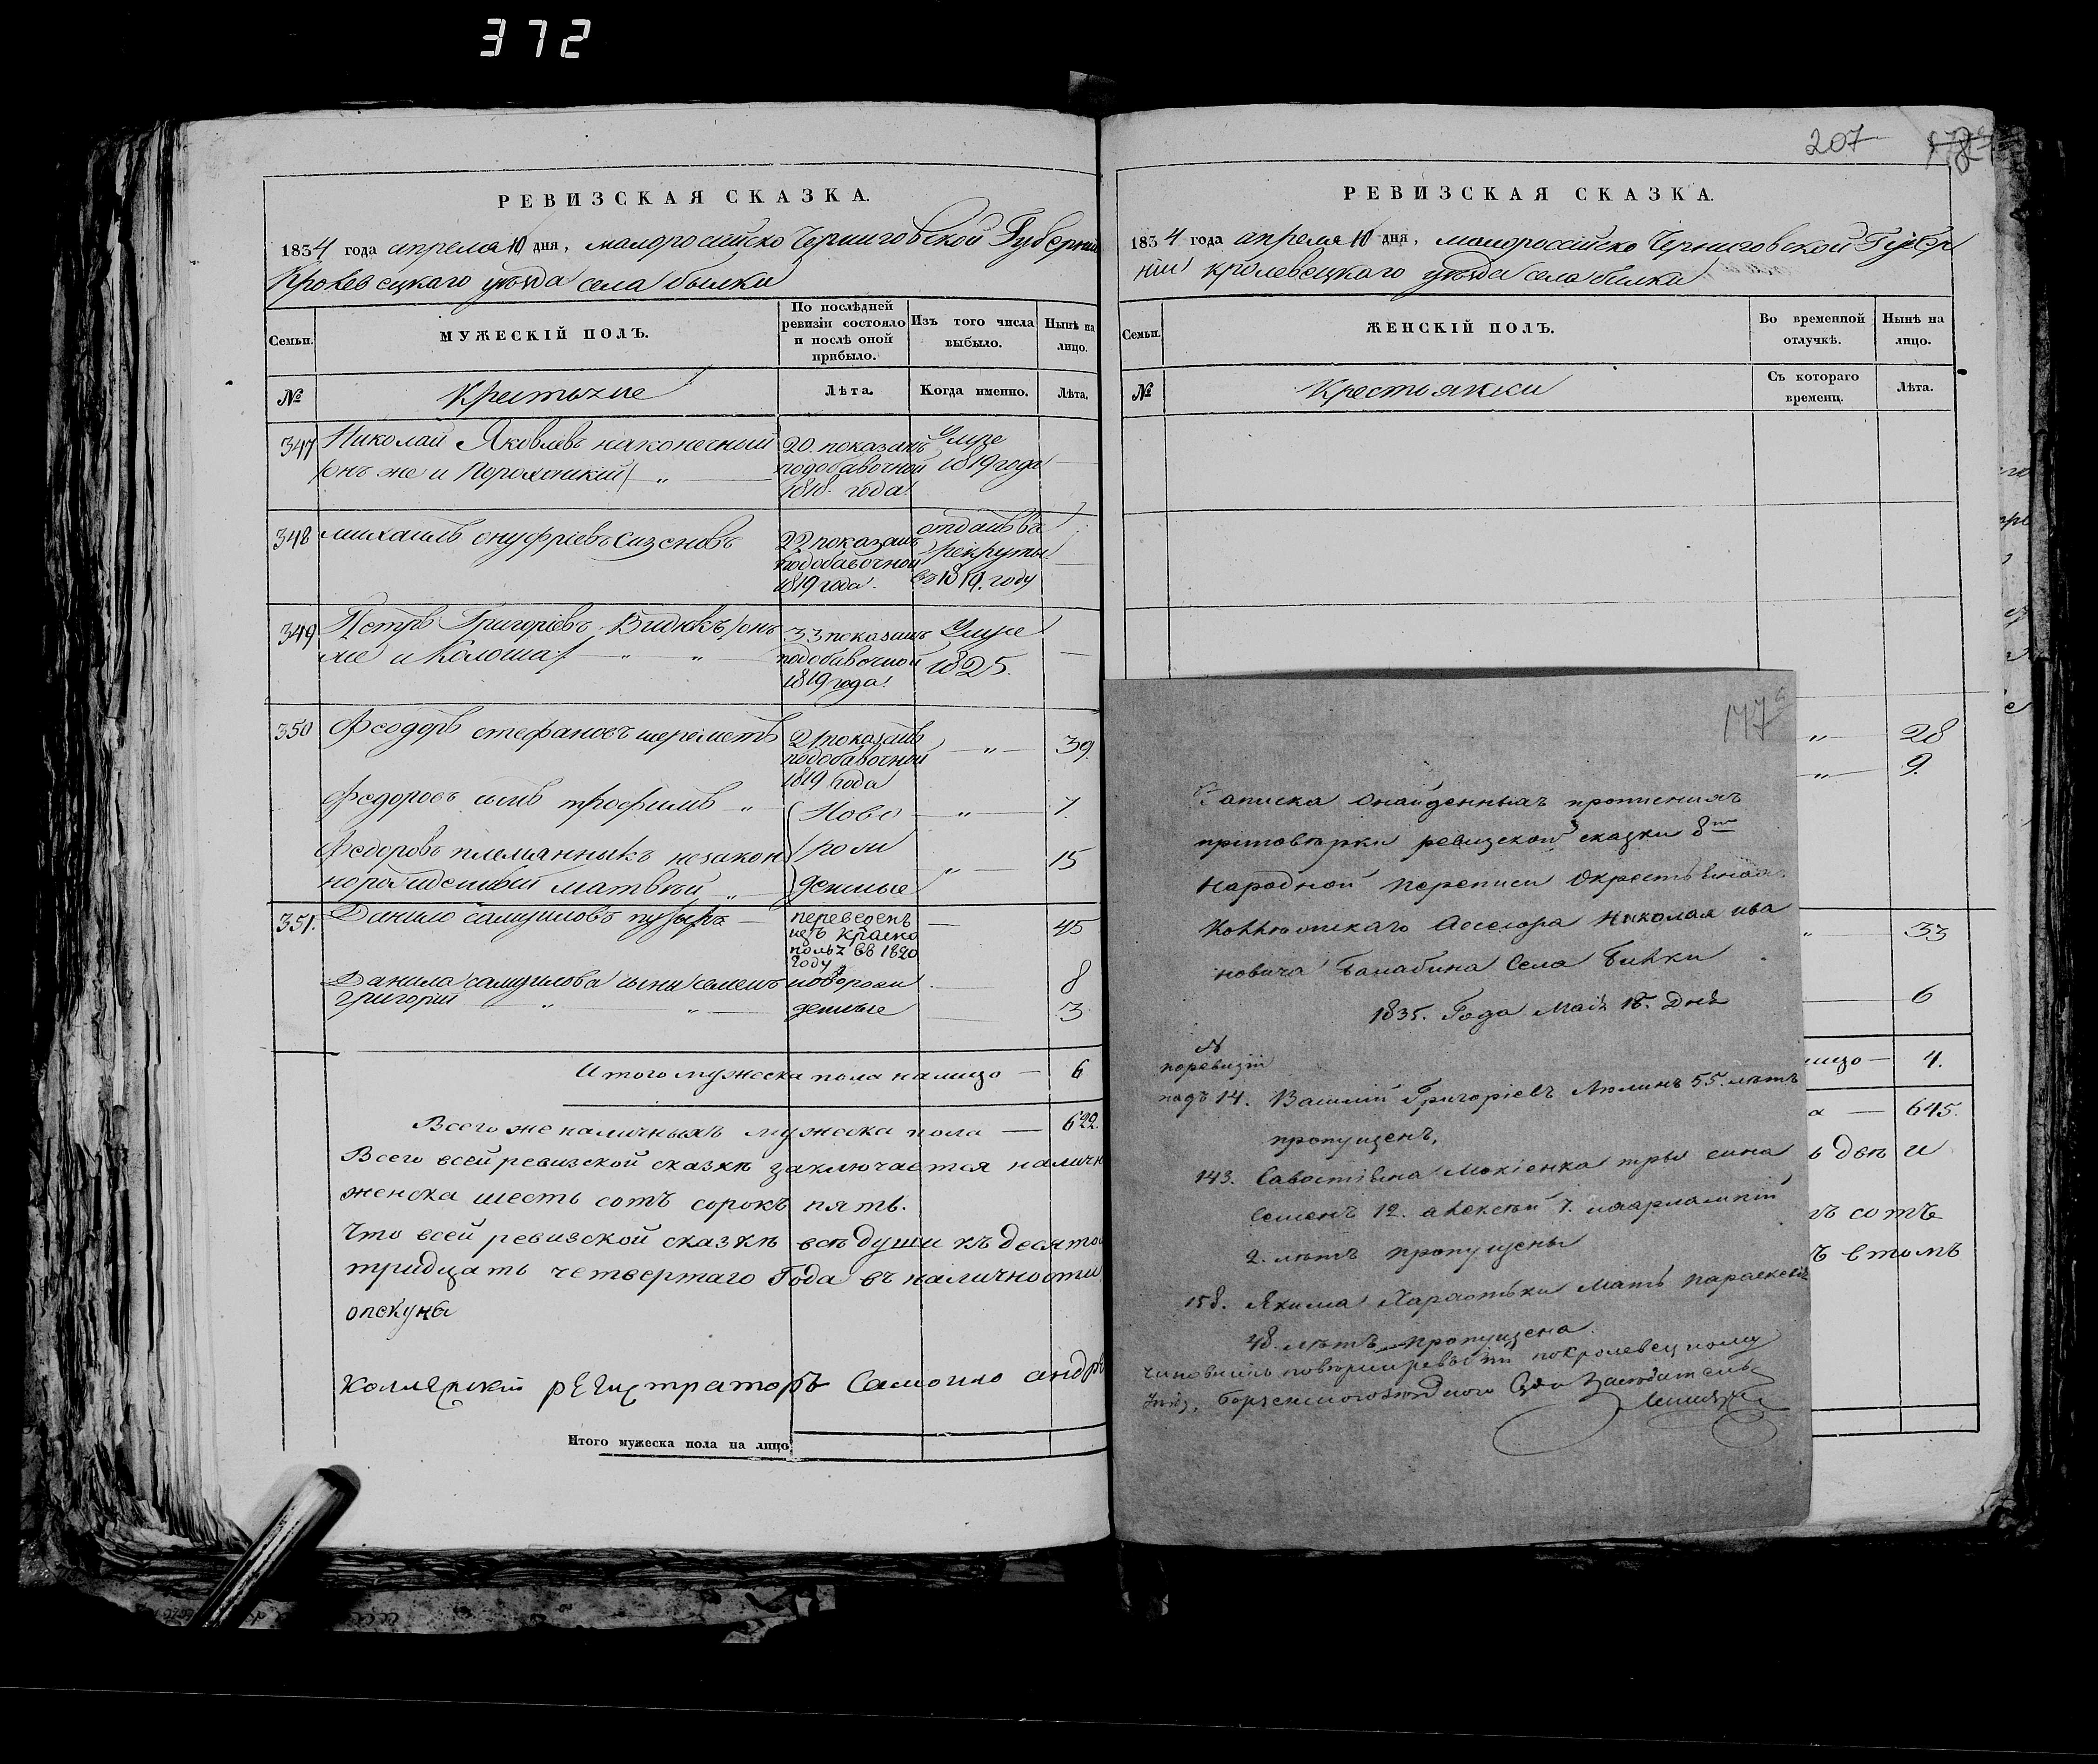 372
РЕВИЗСКАЯ СКАЗКА.
1834 года апреля 10 дня, малоросійско Черниговской Губерніи
Кролевецкаго уѣзда села былки
Семьи.
МУЖЕСКІЙ ПОЛЪ.
По послѣдней ревизіи состояло и послѣ оной прибыло.
Изъ того числа выбыло.
Нынѣ на лицо.
№
Крестьяне
Лѣта.
Когда именно.
Лѣта.
347 Николай Яковлевъ наконечный 20. показанъ Умре
/онъ же и / подобавочной 1819 года
1818. года
348 михаилъ онуфріевъ Сизоновъ 22 показанъ отданъ въ
подобавочной рекруты
1819 года. въ 1819. году
349 Петръ Григоріевъ Видюкъ /онъ 33 показанъ Умре
же и Калоша/ подобавочной 1825.
1819 года
350 Феодоръ стефановъ шереметъ 21 показанъ 39
подобавочной
1819 года
Федоровъ сынъ трофимъ Ново 7.
Федоровъ племянникъ незакон рож 15
норожденный матвѣй денные
351. Данило самуиловъ пузырь переведенъ 45
изъ Красно
полья въ 1820
году
Данила самуилова сыны семенъ новорож 8
григорій денные 3
Итого мужеска пола налицо — 6
Всего же наличныхъ мужеска пола — 622.
Всего всей ревизской сказкѣ заключается наличн
женска шесть сотъ сорокъ пять.
Что всей ревизской сказкѣ всѣ души къ десято
тридцать четвертаго Года въ наличности
опекуны
Коллежскій регистраторъ Самоило андре
Итого мужеска пола на лицо
207
РЕВИЗСКАЯ СКАЗКА.
1834 года апреля 10 дня, малороссійско Черниговской Губер
ніи кролевецкаго уѣзда села билка
Семьи.
ЖЕНСКІЙ ПОЛЪ.
Во временной отлучкѣ.
Нынѣ на лицо.
№
Крестьянки
Съ котораго времени.
Лѣта.
28
9.
33
6
лицо — 4.
а — 645.
ь двѣ и
ъ сотъ
ъ втомъ
177
Записка онайденныхъ
приповѣрки ревизской сказки 8й
народной переписи Окрестьянахъ
Асесора Николая ива
новича Балабина Села Билки
1835. Года Маія 18. Дня
№
поревизіи
подъ 14. Василій Григоріевъ 55. лѣтъ
пропущенъ.
143. Савостіяна Мокіенка три сина
Семенъ 12. алексѣй 7. и харлампій
2. лѣтъ пропущены
158. Якима мать параскевія
48. лѣтъ пропущена